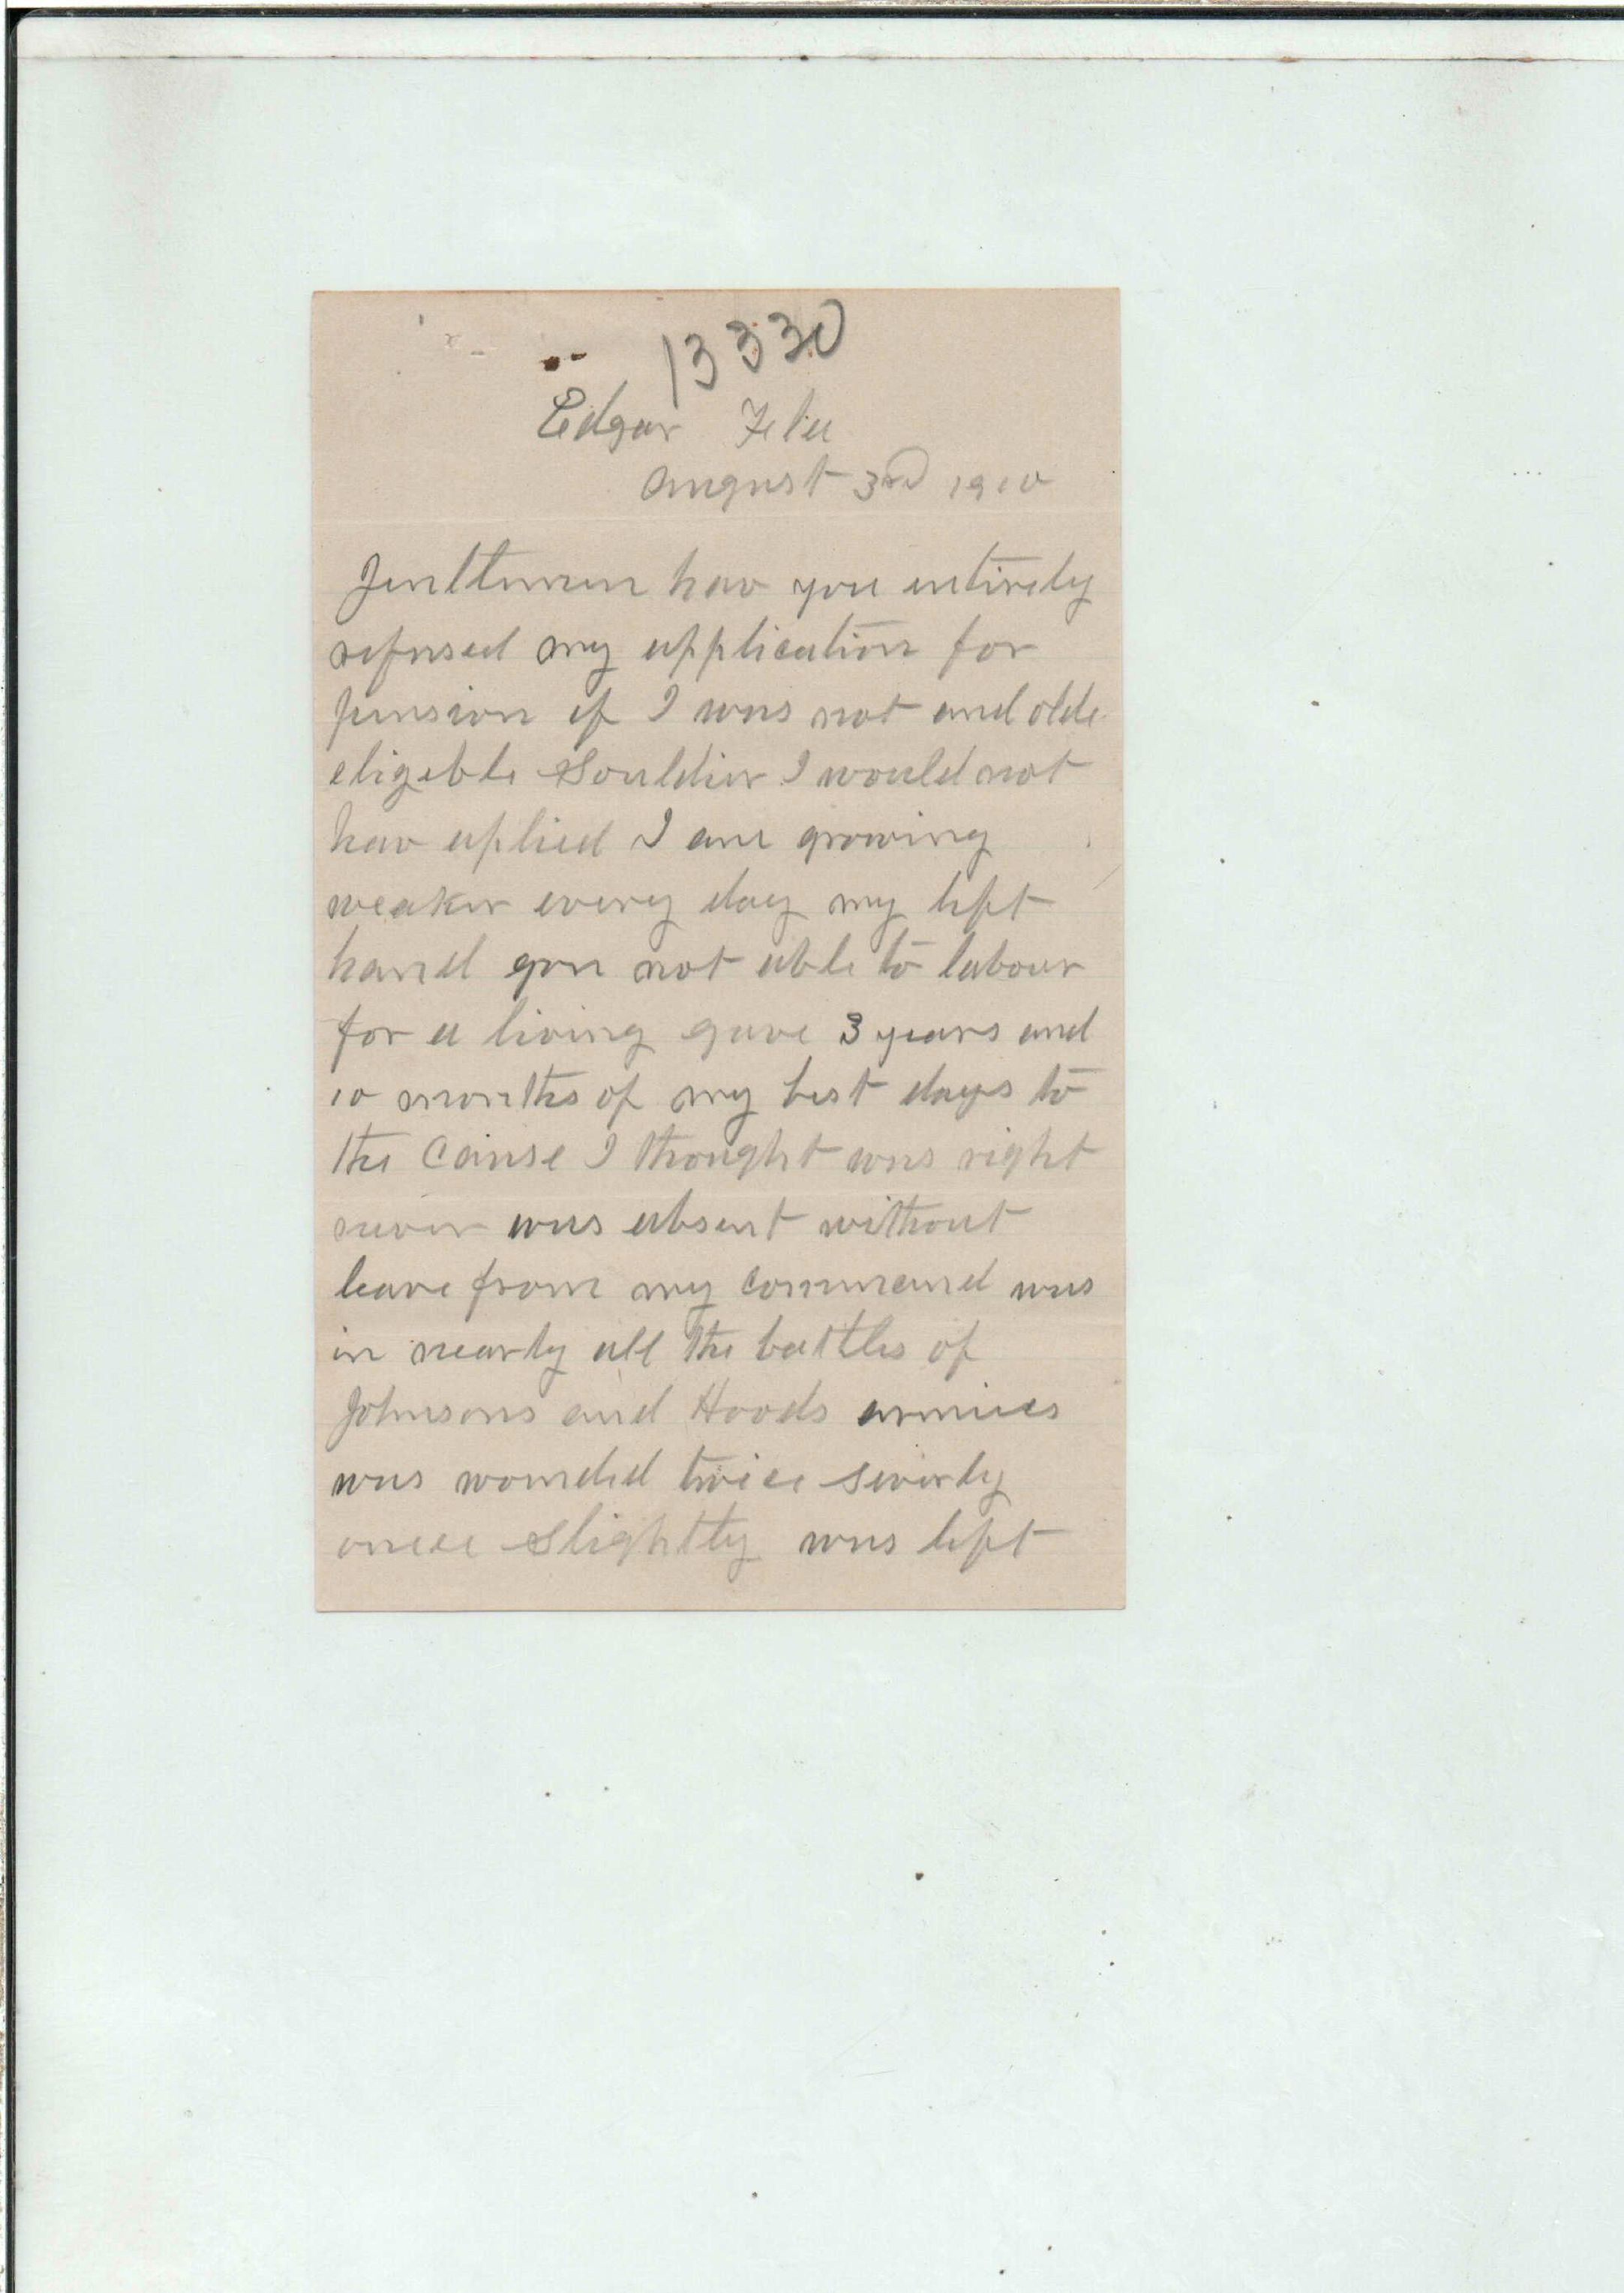 13330
Edgar Fla
August 3rd 1910
Jentlemen hav you entirely
refused my application for
pension if I was not and olde
eligeble Souldier I would not
hav aplied I am growing
weaker every day my left
hand gon not able to labour
for a living gave 3 years and
10 months of my best days to
the Cause I thought was right
never was absent without
leave from my command was
in nearly all the battles of
Johnsons and Hoods armies
was wounded twice severly
onece slightly was left